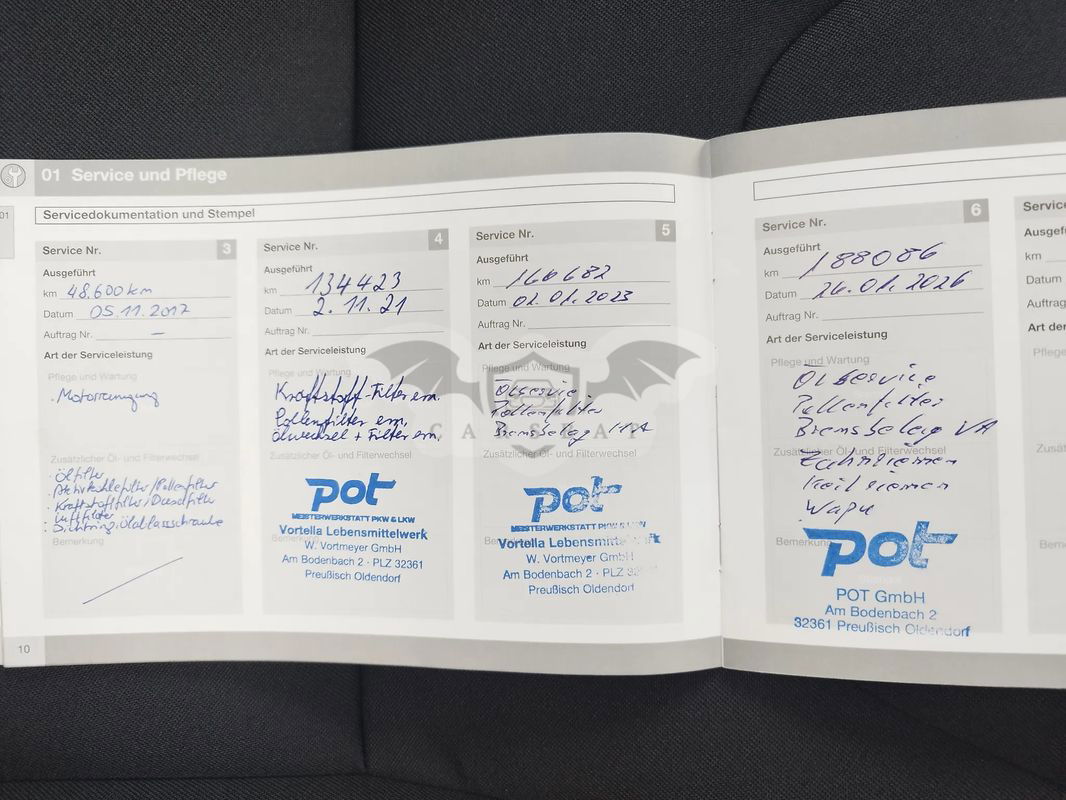 01 Service und Pflege
01
Servicedokumentation und Stempel
Service Nr. 3
Ausgeführt
km 48.600 km
Datum 05.11.2017
Auftrag Nr. –
Art der Serviceleistung
Pflege und Wartung
. Motorreinigung
Zusätzlicher Öl- und Filterwechsel
. Ölfilter
. Aktivkohlefilter/Pollenfilter
. Kraftstofffilter/Dieselfilter
. Luftfilter
. Dichtring, Ölablassschraube
Bemerkung
10
Service Nr. 4
Ausgeführt
km 134423
Datum 2.11.21
Auftrag Nr.
Art der Serviceleistung
Pflege und Wartung
Kraftstoff-Filter ern.
Pollenfilter ern,
Ölwechsel + Filter ern,
Zusätzlicher Öl- und Filterwechsel
pot
MEISTERWERKSTATT PKW & LKW
Vortella Lebensmittelwerk
W. Vortmeyer GmbH
Am Bodenbach 2 · PLZ 32361
Preußisch Oldendorf
Service Nr. 5
Ausgeführt
km 166682
Datum 02.01.2023
Auftrag Nr.
Art der Serviceleistung
Pflege und Wartung
Ölservice
Pollenfilter
Bremsbelag HA
Zusätzlicher Öl- und Filterwechsel
pot
MEISTERWERKSTATT PKW & LKW
Vortella Lebensmittelwerk
W. Vortmeyer GmbH
Am Bodenbach 2 · PLZ 32
Preußisch Oldendorf
CARSLAP
Service Nr. 6
Ausgeführt
km 188086
Datum 26.01.2026
Auftrag Nr.
Art der Serviceleistung
Pflege und Wartung
Ölservice
Pollenfilter
Bremsbelag VA
Zusätzlicher Öl- und Filterwechsel
Zahnriemen
Keilriemen
Wapu
Bemerkung
pot
POT GmbH
Am Bodenbach 2
32361 Preußisch Oldendorf
Service
Ausgefü
km
Datum
Auftrag
Art der
Pflege
Zusätz
Beme